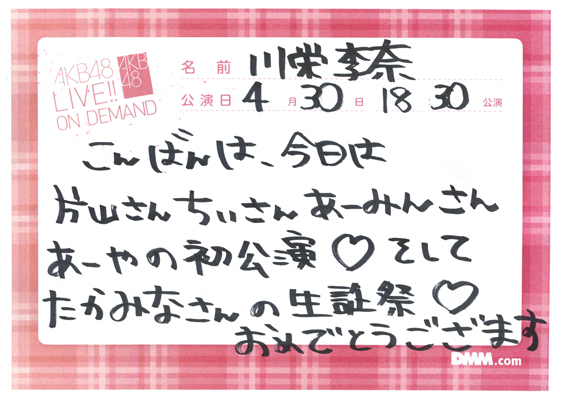 AKB48
LIVE!!
ON DEMAND
AKB
48
名前 川栄李奈
公演日 4月30日 18 30公演
こんばんは、今日は
片山さんちぃさんあーみんさん
あーやの初公演♡そして
たかみなさんの生誕祭♡
おめでとうございます
DMM.com